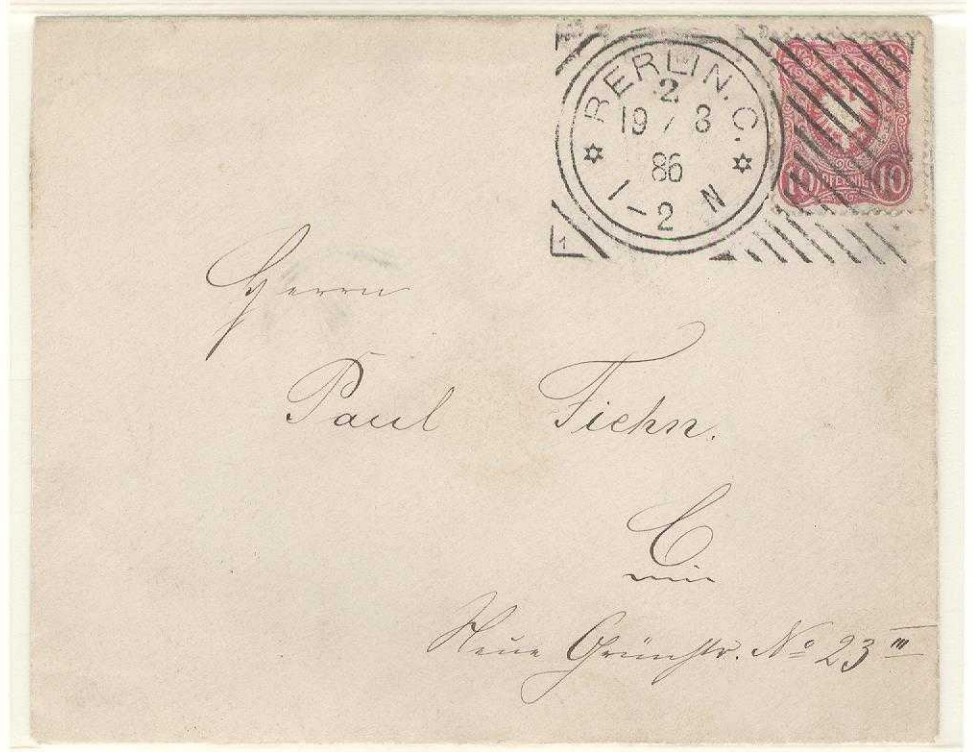 BERLIN. C.
2
19 / 3
86
1-2 N
10 PFENNIG 10
Herrn
Paul Fiehn.
C
Neue Grünstr. No 23 III